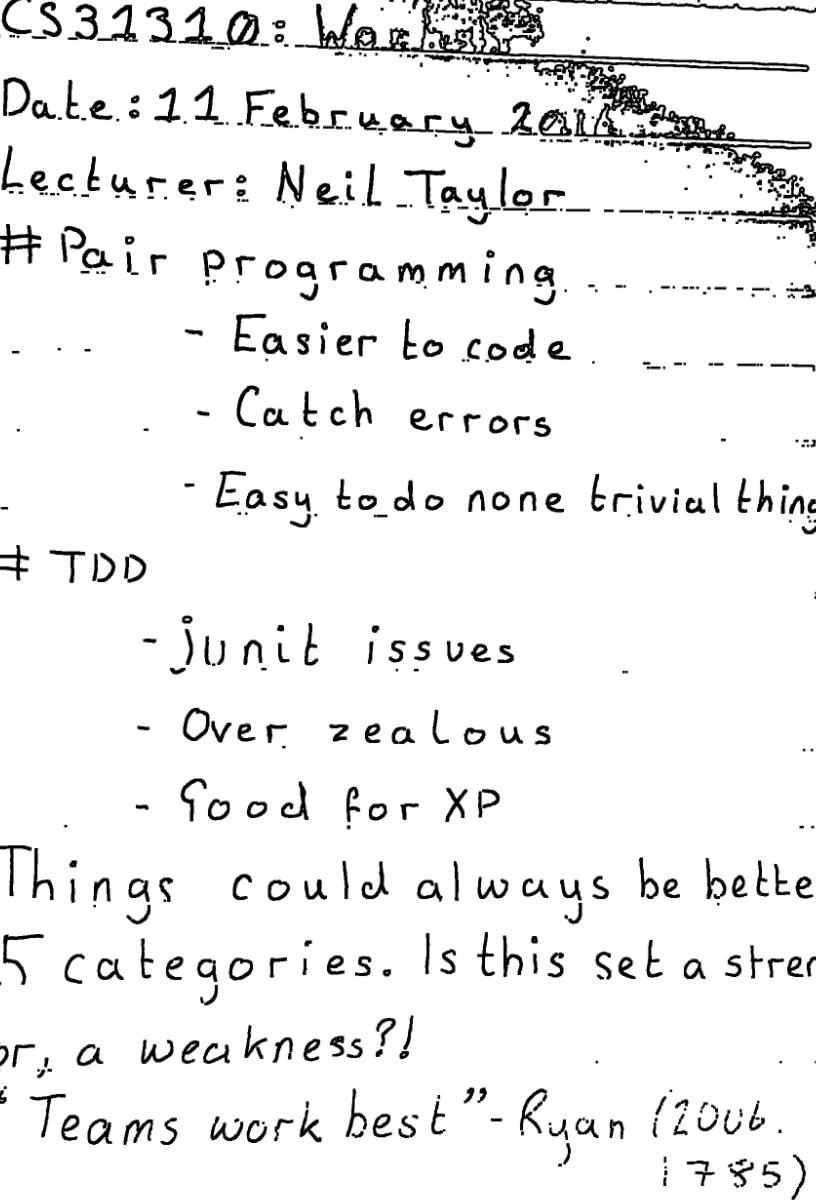 CS31310:
Date: 11 February
Lecturer: Neil Taylor
# Pair programming
- Easier to code
- Catch errors
- Easy to do none trivial thing
# TDD
- junit issues
- Over zealous
- Good for XP
Things could always be bette
5 categories. Is this set a stren
or, a weakness?!
"Teams work best" - Ryan (2006.
1785)